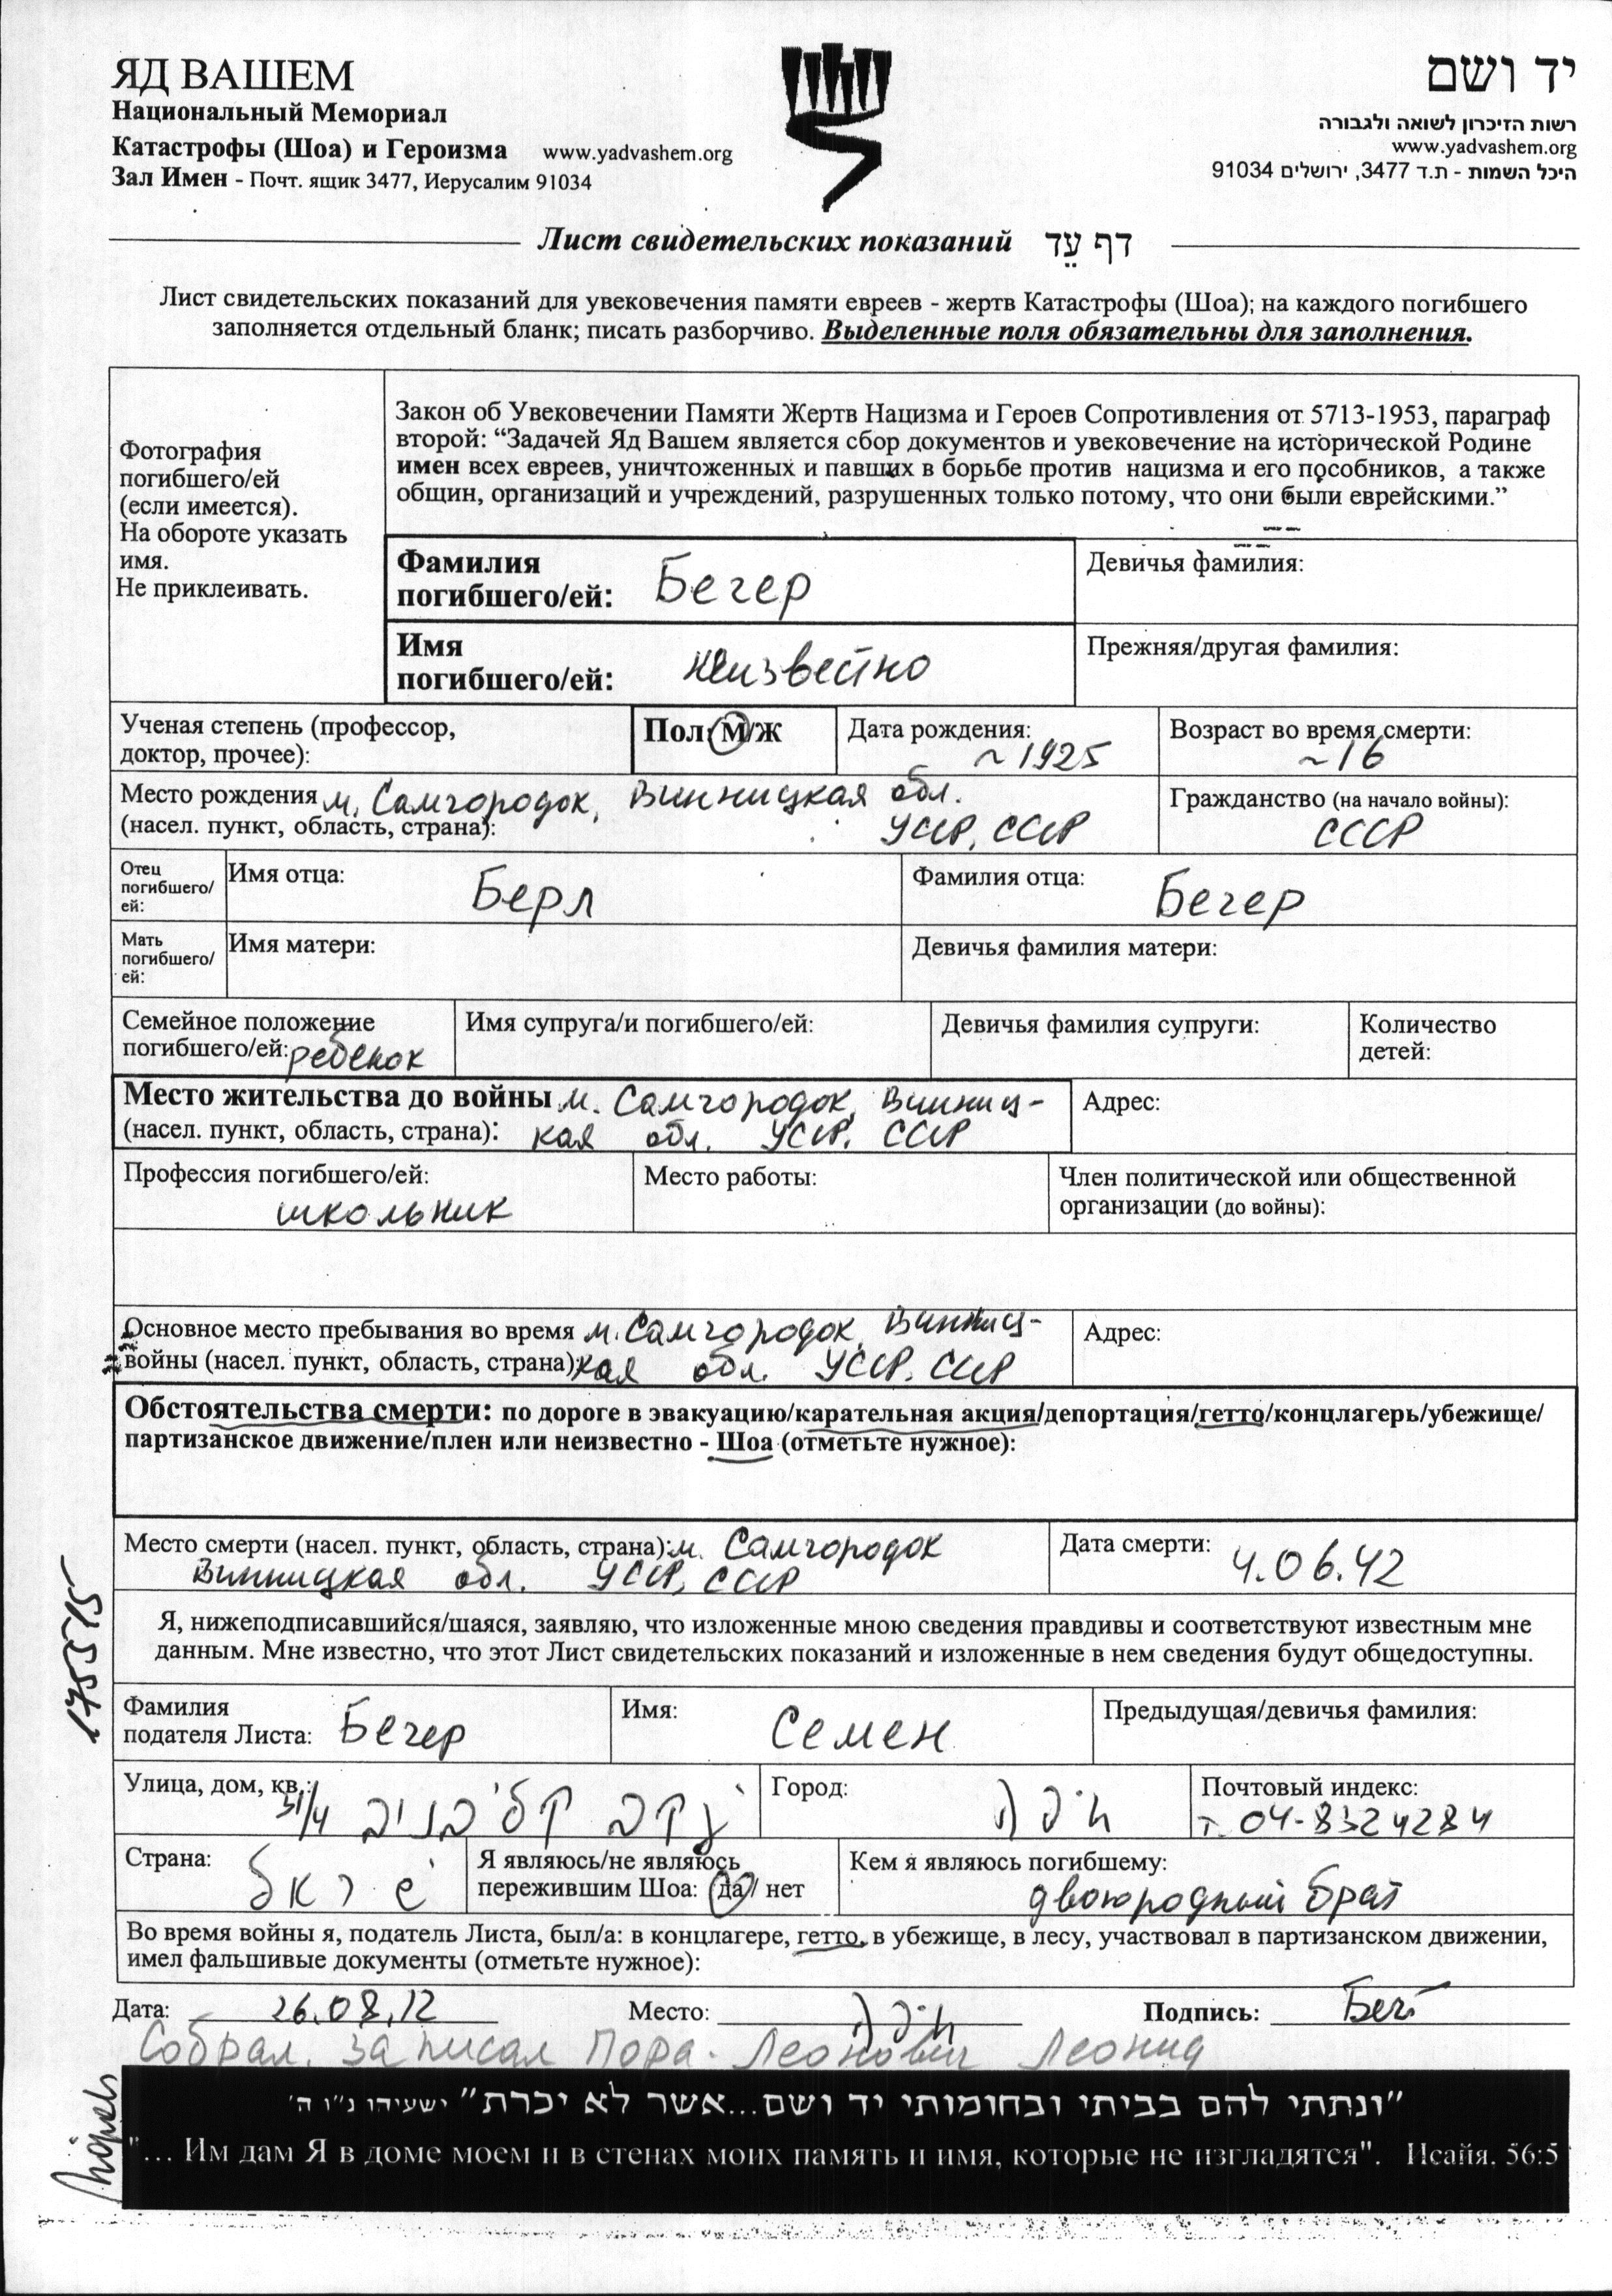 ЯД ВАШЕМ
Национальный Мемориал
Катастрофы (Шоа) и Героизма www.yadvashem.org
Зал Имен - Почт. ящик 3477, Иерусалим 91034
יד ושם
רשות הזיכרון לשואה ולגבורה
www.yadvashem.org
היכל השמות - ת.ד 3477, ירושלים 91034
Лист свидетельских показаний דף עֵד
Лист свидетельских показаний для увековечения памяти евреев - жертв Катастрофы (Шоа); на каждого погибшего
заполняется отдельный бланк; писать разборчиво. Выделенные поля обязательны для заполнения.
Фотография
погибшего/ей
(если имеется).
На обороте указать
имя.
Не приклеивать.
Закон об Увековечении Памяти Жертв Нацизма и Героев Сопротивления от 5713-1953, параграф
второй: “Задачей Яд Вашем является сбор документов и увековечение на исторической Родине
имен всех евреев, уничтоженных и павших в борьбе против нацизма и его пособников, а также
общин, организаций и учреждений, разрушенных только потому, что они были еврейскими.”
Фамилия
погибшего/ей: Бегер
Девичья фамилия:
Имя
погибшего/ей: неизвестно
Прежняя/другая фамилия:
Ученая степень (профессор,
доктор, прочее):
Пол: М/Ж
Дата рождения:
~ 1925
Возраст во время смерти:
~16
Место рождения м. Самгородок, Винницкая обл.
(насел. пункт, область, страна): УССР, СССР
Гражданство (на начало войны):
СССР
Отец
погибшего/
ей:
Имя отца: Берл
Фамилия отца: Бегер
Мать
погибшего/
ей:
Имя матери:
Девичья фамилия матери:
Семейное положение
погибшего/ей: ребенок
Имя супруга/и погибшего/ей:
Девичья фамилия супруги:
Количество
детей:
Место жительства до войны м. Самгородок, Винниц-
(насел. пункт, область, страна): кая обл. УССР, СССР
Адрес:
Профессия погибшего/ей:
школьник
Место работы:
Член политической или общественной
организации (до войны):
Основное место пребывания во время м. Самгородок, Винниц-
войны (насел. пункт, область, страна): кая обл. УССР, СССР
Адрес:
Обстоятельства смерти: по дороге в эвакуацию/карательная акция/депортация/гетто/концлагерь/убежище/
партизанское движение/плен или неизвестно - Шоа (отметьте нужное):
Место смерти (насел. пункт, область, страна): м. Самгородок
Винницкая обл. УССР, СССР
Дата смерти: 4.06.42
Я, нижеподписавшийся/шаяся, заявляю, что изложенные мною сведения правдивы и соответствуют известным мне
данным. Мне известно, что этот Лист свидетельских показаний и изложенные в нем сведения будут общедоступны.
Фамилия
подателя Листа: Бегер
Имя: Семен
Предыдущая/девичья фамилия:
Улица, дом, кв.:
31/4
Город: חיפה
Почтовый индекс:
т. 04-8324284
Страна:
Я являюсь/не являюсь
пережившим Шоа: да / нет
Кем я являюсь погибшему:
двоюродный брат
Во время войны я, податель Листа, был/а: в концлагере, гетто, в убежище, в лесу, участвовал в партизанском движении,
имел фальшивые документы (отметьте нужное):
Дата: 26.08.12 Место: חיפה Подпись: Бег
Собрал, записал Пора-Леонович Леонид
"ונתתי להם בביתי ובחומותי יד ושם...אשר לא יכרת" ישעיהו נ"ו ה'
"... Им дам Я в доме моем и в стенах моих память и имя, которые не изгладятся". Исайя. 56:5